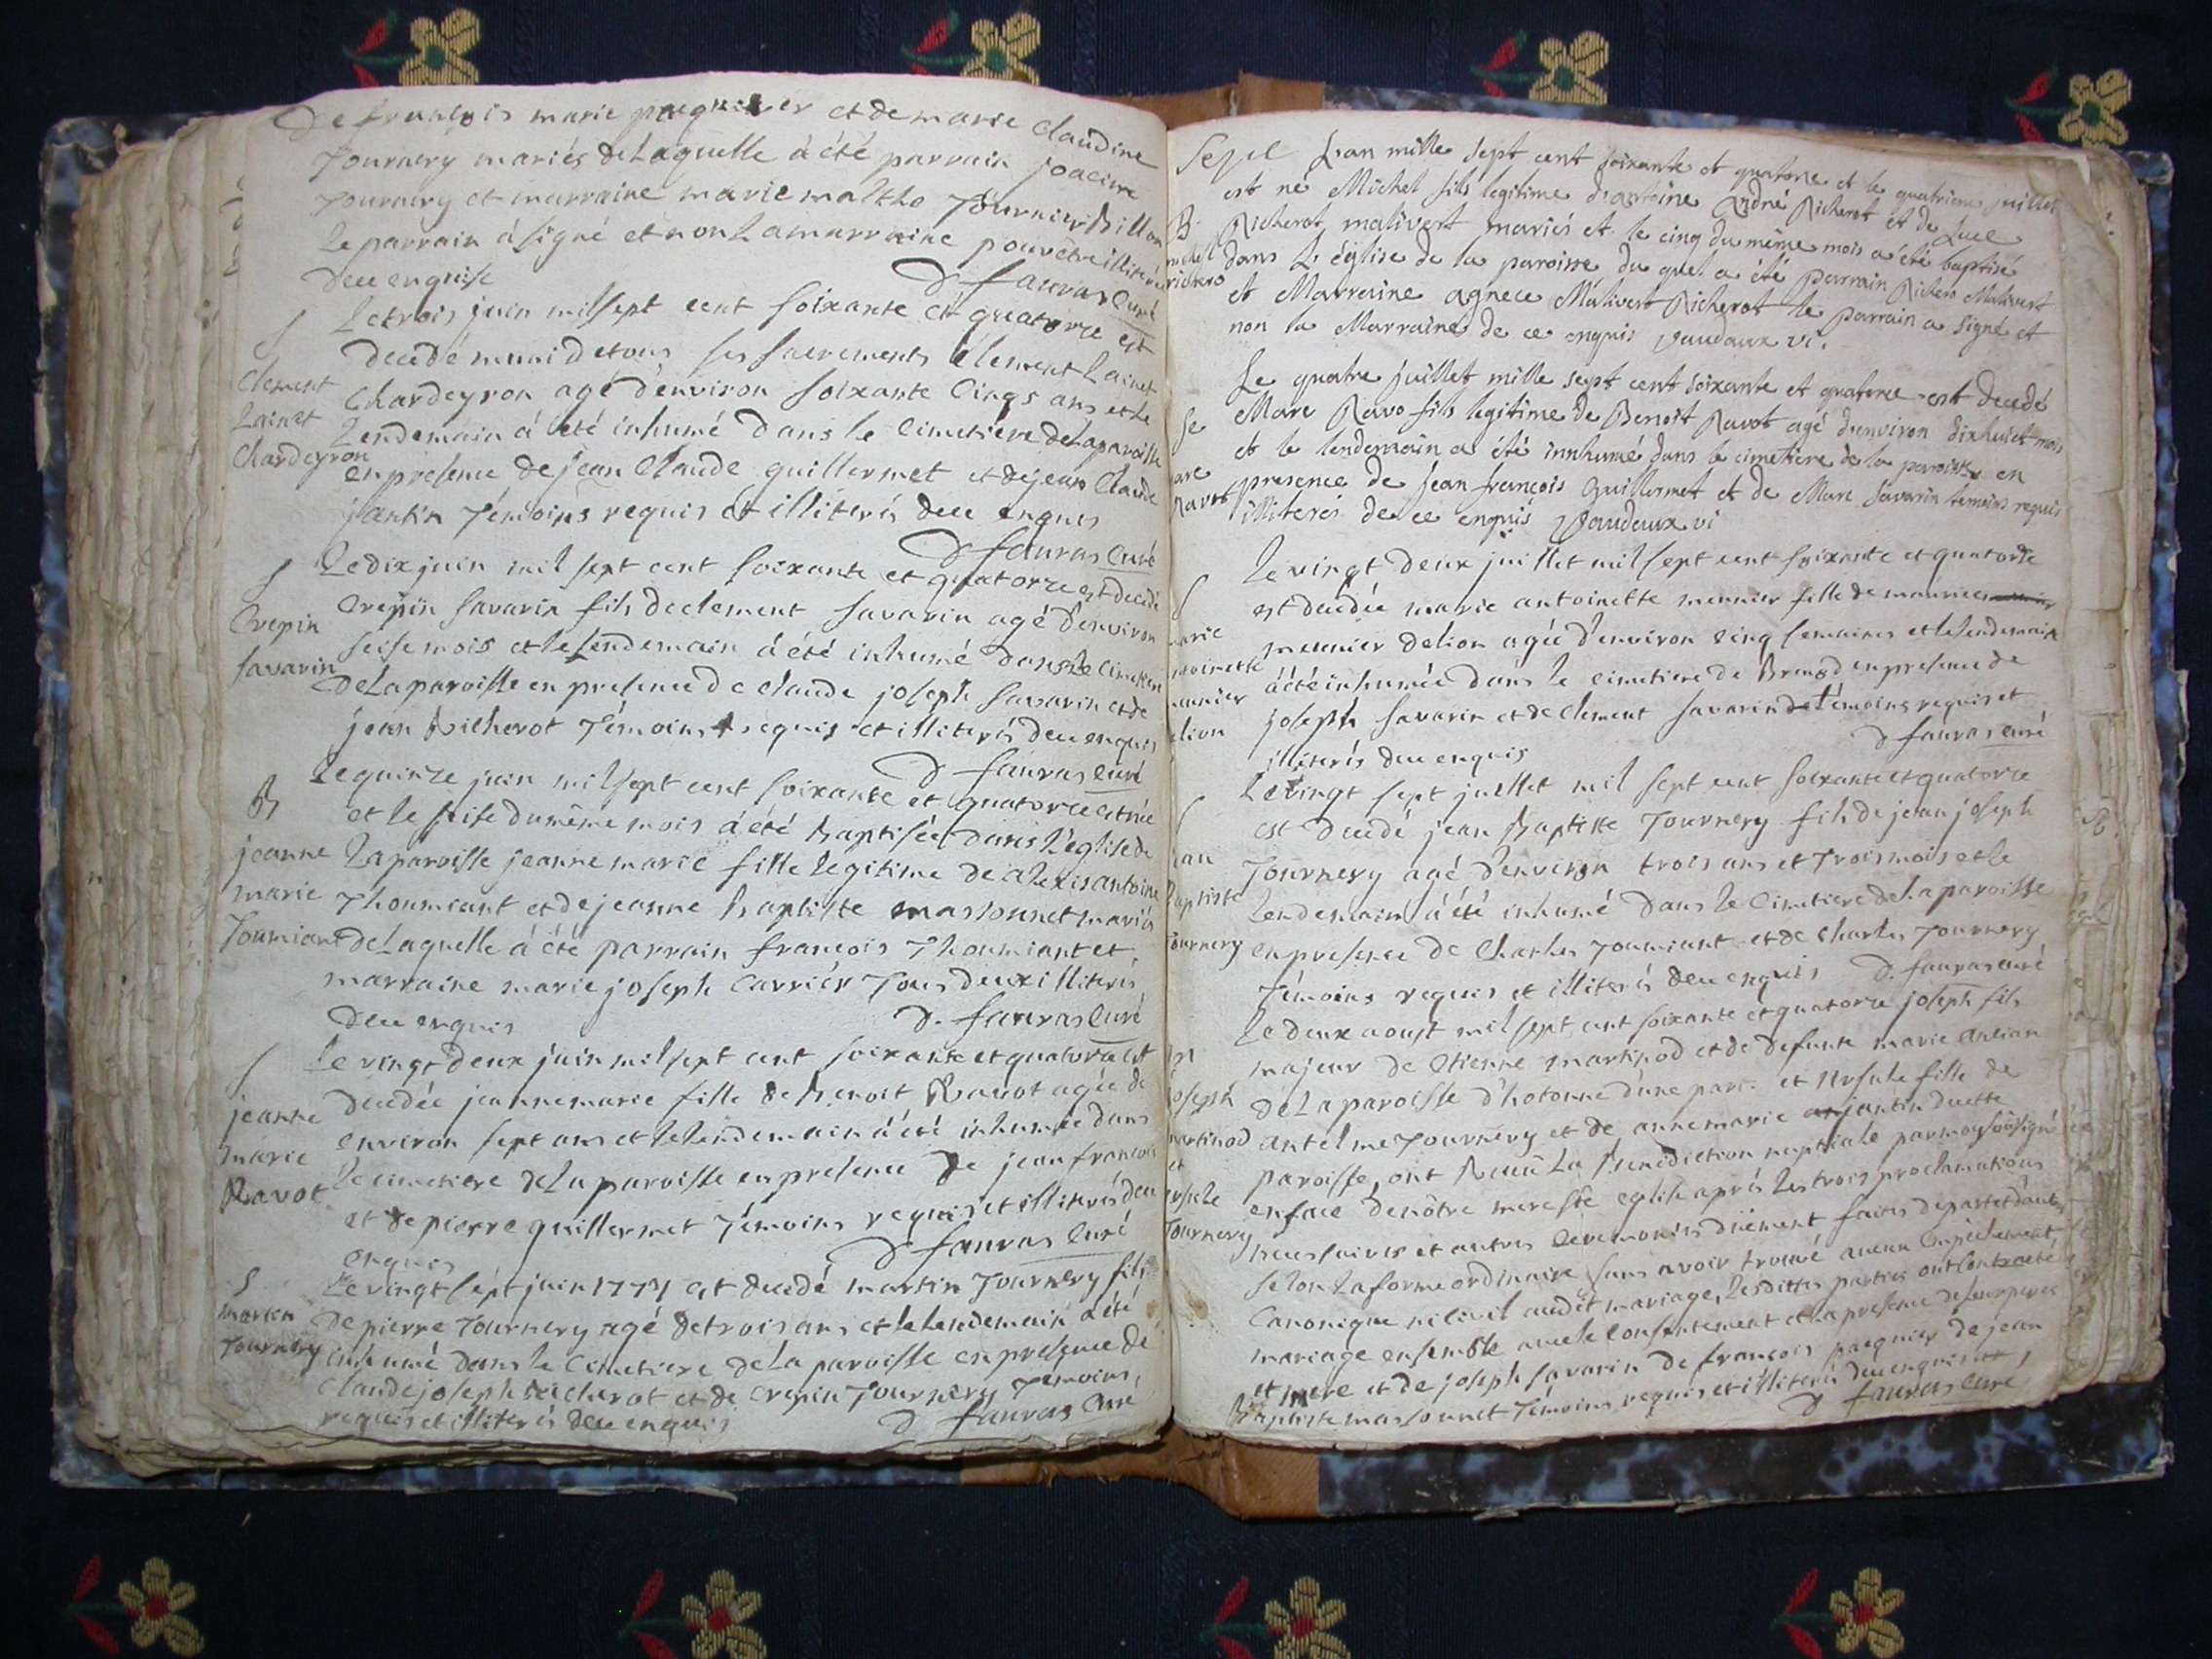 De francois marie paquier et de marie claudine
Tournery mariés de Laquelle à été parrain joacime
Tournery et marraine marie Tournier Billon
Le parrain à signé et non La marraine pour être illiterée
deu enquise D fauras Curé
S Le trois juin mil sept cent soixante et quatorze est
decedé muni de tous ses sacrements Clement Lainet
Clement Chardeyron agé d'environ soixante Cinqs ans et le
Lainet Lendemain à été inhumé dans le Cimetiere de La paroisse
Chardeyron en presence de jean Claude guillermet et de jean Claude
jantin Témoins requis et illiterés deu enquis
D fauras Curé
S Le dix juin mil sept cent soixante et quatorze est decedé
Crepin Crepin savarin fils de clement savarin agé d'environ
savarin seise mois et le Lendemain à été inhumé dans Le Cimetiere
De La paroisse en presence de Claude joseph savarin et de
jean Richerot Témoins requis et illiterés deu enquis
D fauras Curé
B Le quinze juin mil sept cent soixante et quatorze est née
et le seise du même mois à été Baptisée dans L'église de
jeanne La paroisse jeanne marie fille Legitime de alexis antoine
marie Thoumiant et de jeanne Baptiste massonnet mariés
Toumiant de Laquelle à été parrain francois Thoumiant et
marraine marie joseph Carrier Tous deux illiterés
deu enquis D. fauras Curé
S Le vingt deux juin mil sept cent soixante et quatorze est
jeanne decedée jeanne marie fille de Benoit Ravot agée de
marie environ sept ans et le Lendemain à été inhumée dans
Ravot Le cimetiere de La paroisse en presence de jean francois
et de pierre guillermet Témoins requis et illiterés deu
enquis D fauras Curé
S Le vingt sept juin 1774 est decedé martin Tournery fils
marten de pierre Tournery agé de trois ans et le lendemain à été
Tournery inhumé dans le Cimetiere de La paroisse en presence de
Claude joseph Richerot et de Crepin Tournery Temoins,
requis et illiterés deu enquis D fauras Curé
L'an mille sept cent soixante et quatorze et le quatrieme juillet
est né Michel fils legitime d'antoine André Richerot et de Luce
B Richerot malivert mariés et le cinq du même mois a été baptisé
michel dans l'église de la paroisse du quel a été Parrain Richero Malivert
richero et Marreine agnece Malivert Richerot le Parrain a signé et
non la Marraine de ce enquis vaudaux vi.
Le quatre juillet mille sept cent soixante et quatorze est decedé
Se Marc Ravo fils legitime de Benoit Ravot agé d'environ dixhuict mois
et le lendemain a été innhumé dans le cimetiere de la paroisse en
arc presence de jean françois Guillermet et de Marc Savarin témoins requis
Ravot illiterés de ce enquis Vaudaux vi
Le vingt deux juillet mil sept cent soixante et quatorze
S est decedée marie antoinette meunier fille de maurice
arie meunier delion agée d'environ cinq semaines et le lendemain
ntoinette à été inhumée dans le cimetiere de Brenod en presence de
eunier joseph savarin et de clement savarin témoins requis et
elion illiterés deu enquis D fauras curé
Le vingt sept juillet mil sept cent soixante et quatorze
est decedé jean Baptiste Tournery fils de jean joseph
ean Tournery agé d'environ trois ans et Trois mois et le
baptiste Lendemain à été inhumé dans le Cimetiere de La paroisse
Tournery en presence de Charles Toumiant et de Charles Tournery
Témoins requis et illiterés deu enquis D. fauras curé
Le deux aoust mil sept cent soixante et quatorze joseph fils
majeur de Etienne martinod et de defunte marie
joseph de La paroisse d'hotonne d'une part et Ursule fille de
martinod antelme Tournery et de anne marie jantin de cette
et paroisse, ont Receu La Benediction nuptiale par moy sousigné
ursule en face de nôtre mere ste eglise aprés les trois proclamations
Tournery necessaires et autres Ceremonies düement faites de part et d'autre
selon La forme ordinaire sans avoir trouvé aucun Empêchement,
Canonique ni Civil audit mariage, Lesdittes parties ont Contracté
mariage ensemble avec le Consentement et La presence de leur peres
et mere et de joseph savarin de francois paquier de jean
Baptiste massonnet Témoins requis et illiterés deu enquis
D fauras curé